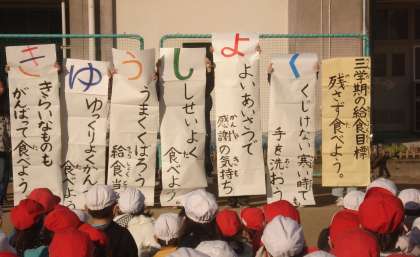 き
きらいなものも
がんばって食べよう
ゆ
ゆっくりよくかん
食べよう
う
うまくくばろう
給食当
し
しせいよく
食べよう
よ
よいあいさつで
感謝の気持ち
く
くじけない寒い時でも
手を洗おう
三学期の給食目標
残さず食べよう。